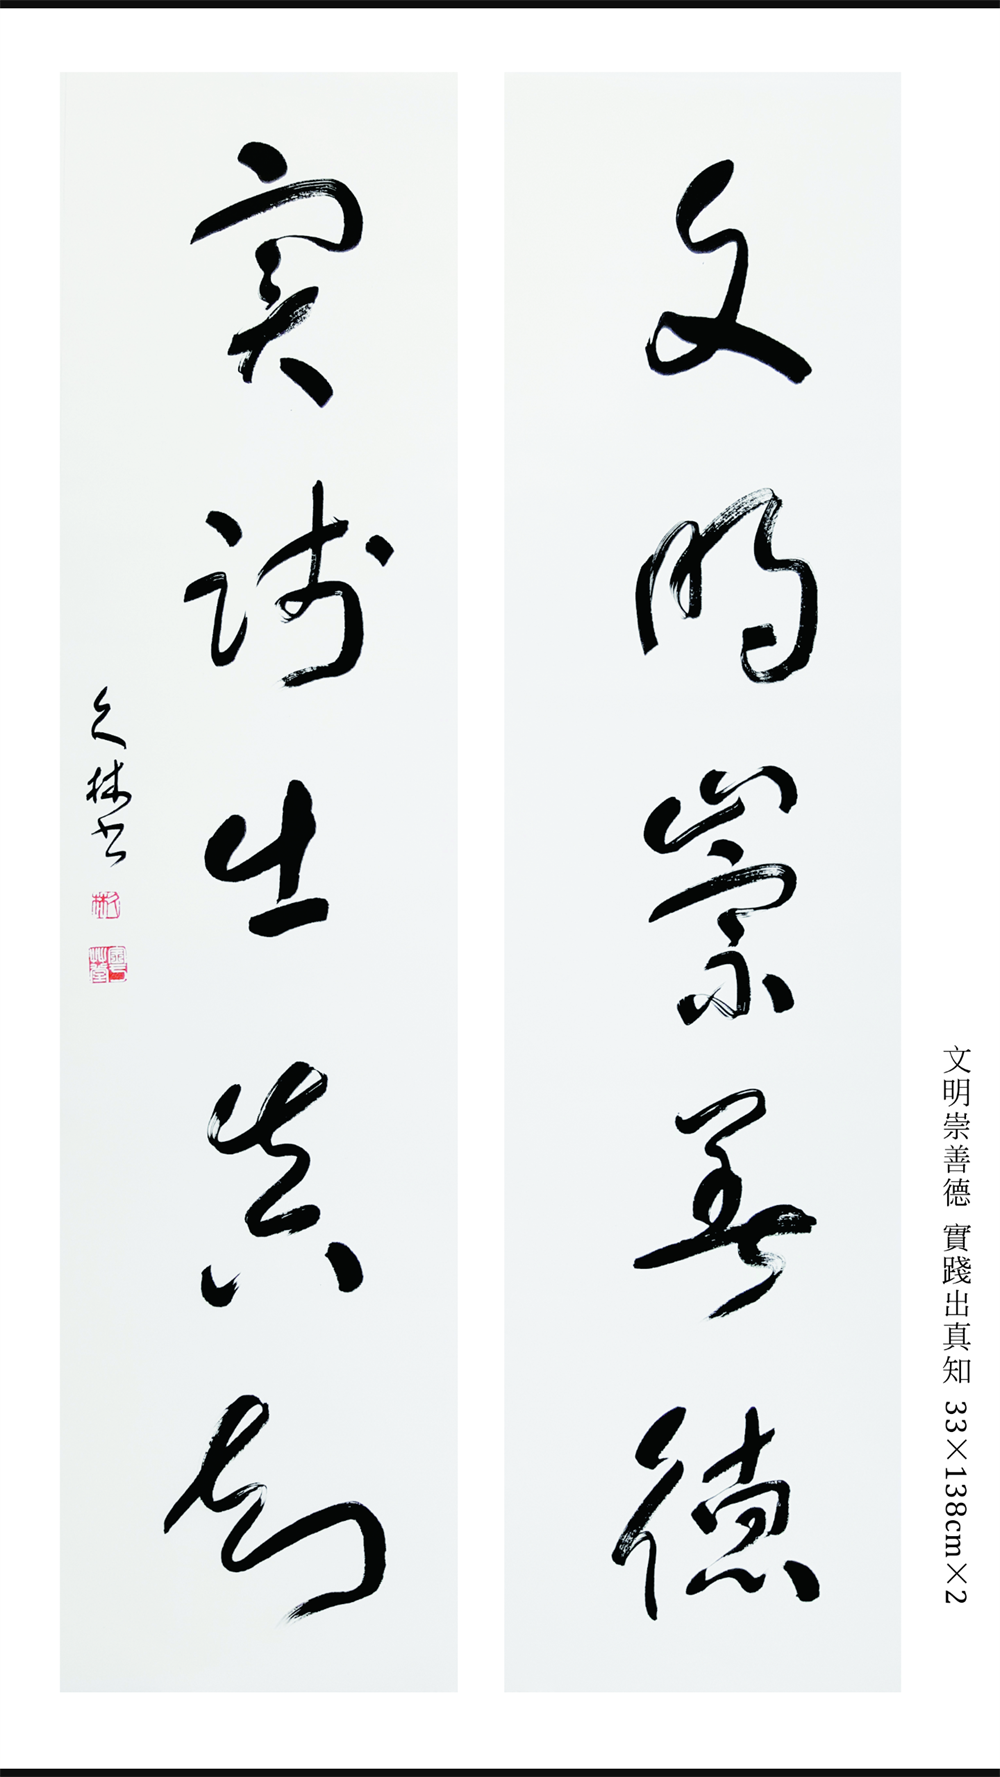 文明崇善德 實踐出真知 33×138cm×2
文明崇善德
實踐出真知